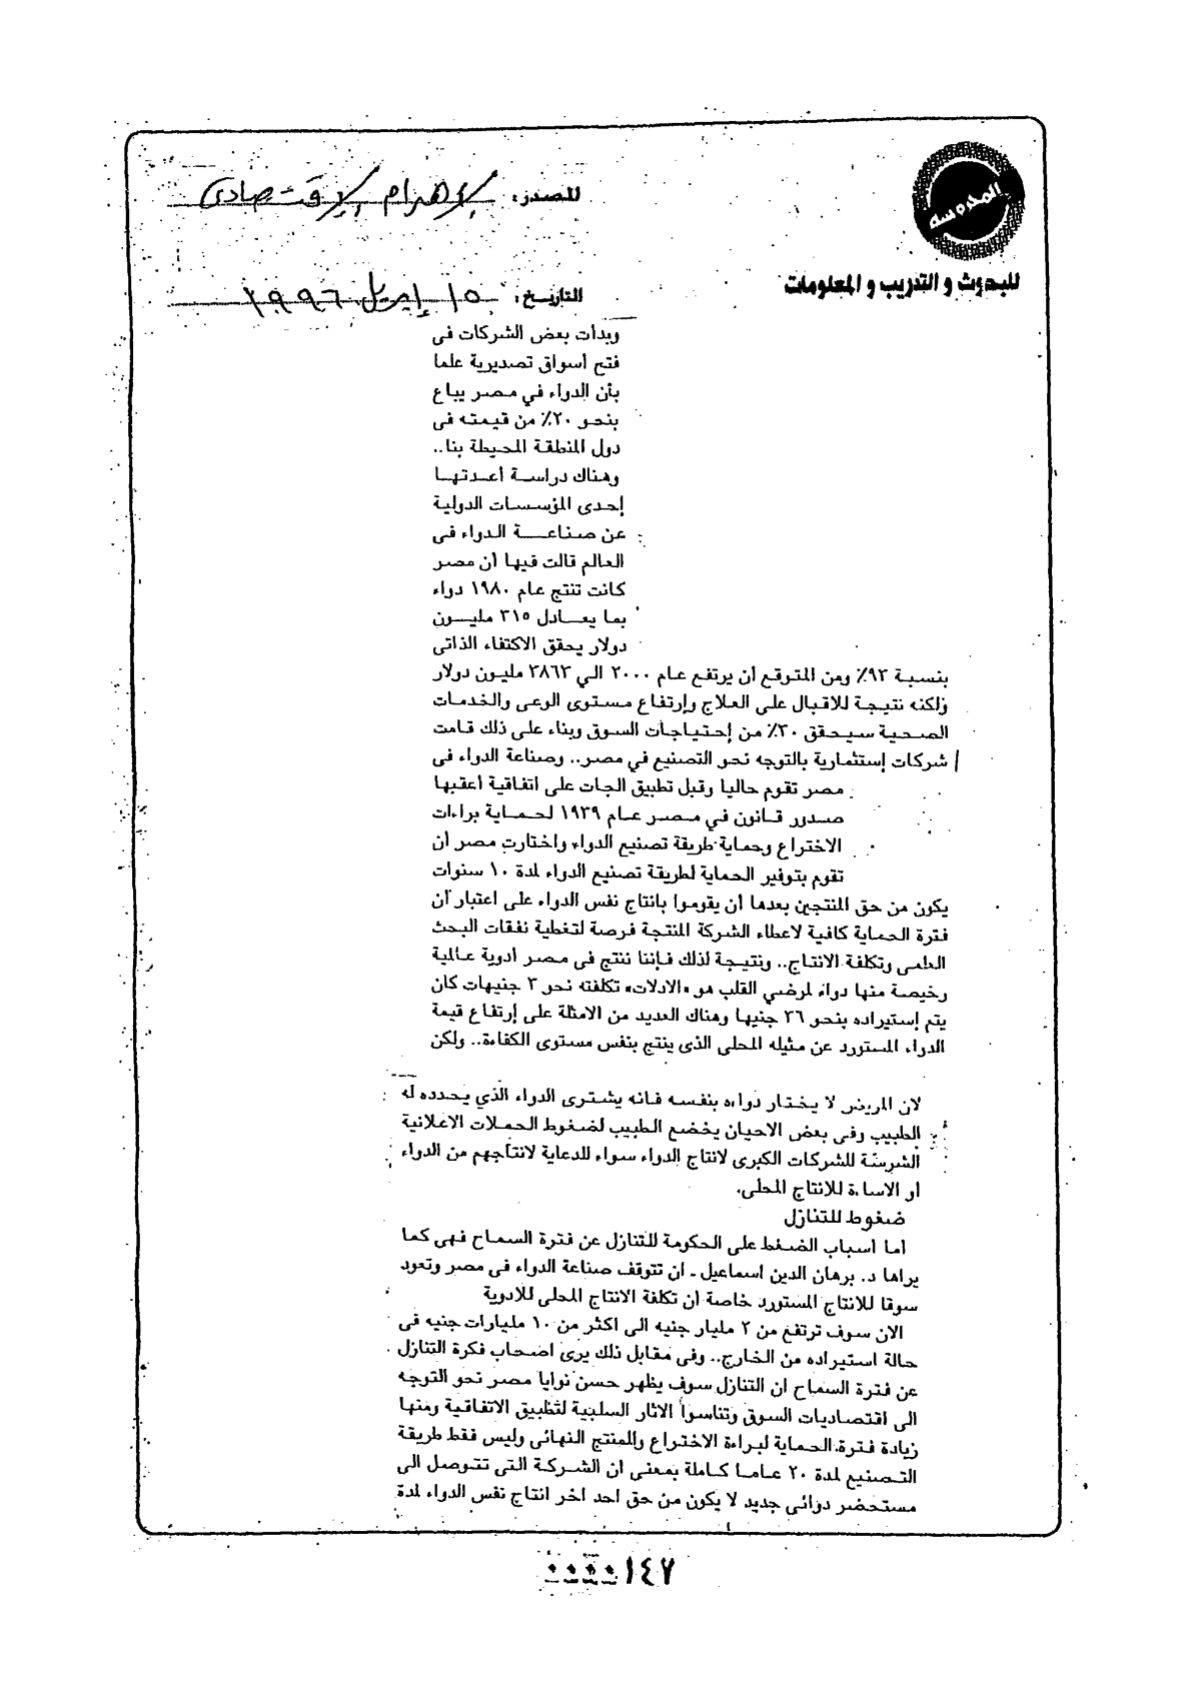 المحروسة
للبحوث و التدريب و المعلومات
المصدر: الأهرام الاقتصادى
التاريخ: ١٥ إبريل ١٩٩٦
وبدأت بعض الشركات فى
فتح أسواق تصديرية علما
بأن الدواء في مصر يباع
بنحو ٢٠٪ من قيمته فى
دول المنطقة المحيطة بنا..
وهناك دراسة أعدتها
إحدى المؤسسات الدولية
عن صناعة الدواء فى
العالم قالت فيها أن مصر
كانت تنتج عام ١٩٨٠ دواء
بما يعادل ٣١٥ مليون
دولار يحقق الاكتفاء الذاتى
بنسبة ٩٣٪ ومن المتوقع أن يرتفع عام ٢٠٠٠ الي ٣٨٦٣ مليون دولار
ولكنه نتيجة للاقبال على العلاج وإرتفاع مستوى الوعى والخدمات
الصحية سيحقق ٣٠٪ من إحتياجات السوق وبناء على ذلك قامت
شركات إستثمارية بالتوجه نحو التصنيع في مصر.. وصناعة الدواء فى
مصر تقوم حاليا وقبل تطبيق الجات على اتفاقية أعقبها
صدور قانون في مصر عام ١٩٣٩ لحماية براءات
الاختراع وحماية طريقة تصنيع الدواء واختارت مصر أن
تقوم بتوفير الحماية لطريقة تصنيع الدواء لمدة ١٠ سنوات
يكون من حق المنتجين بعدها أن يقوموا بانتاج نفس الدواء على اعتبار أن
فترة الحماية كافية لاعطاء الشركة المنتجة فرصة لتغطية نفقات البحث
العلمى وتكلفة الانتاج.. ونتيجة لذلك فإننا ننتج فى مصر أدوية عالمية
رخيصة منها دواء لمرضي القلب هو «الادلات» تكلفته نحو ٣ جنيهات كان
يتم إستيراده بنحو ٣٦ جنيها وهناك العديد من الامثلة على إرتفاع قيمة
الدواء المستورد عن مثيله المحلى الذى ينتج بنفس مستوى الكفاءة.. ولكن
لان المريض لا يختار دواءه بنفسه فانه يشترى الدواء الذي يحدده له
الطبيب وفى بعض الاحيان يخضع الطبيب لضغوط الحملات الاعلانية
الشرسة للشركات الكبرى لانتاج الدواء سواء للدعاية لانتاجهم من الدواء
أو الاساءة للانتاج المحلى.
ضغوط للتنازل
أما أسباب الضغط على الحكومة للتنازل عن فترة السماح فهى كما
يراها د. برهان الدين اسماعيل ـ ان تتوقف صناعة الدواء فى مصر وتعود
سوقا للانتاج المستورد خاصة أن تكلفة الانتاج المحلى للادوية
الان سوف ترتفع من ٢ مليار جنيه الى اكثر من ١٠ مليارات جنيه فى
حالة استيراده من الخارج.. وفى مقابل ذلك يرى اصحاب فكرة التنازل
عن فترة السماح ان التنازل سوف يظهر حسن نوايا مصر نحو التوجه
الى اقتصاديات السوق وتناسوا الاثار السلبية لتطبيق الاتفاقية ومنها
زيادة فترة الحماية لبراءة الاختراع والمنتج النهائى وليس فقط طريقة
التصنيع لمدة ٢٠ عاما كاملة بمعنى ان الشركة التى تتوصل الى
مستحضر دوائى جديد لا يكون من حق احد اخر انتاج نفس الدواء لمدة
١٤٧